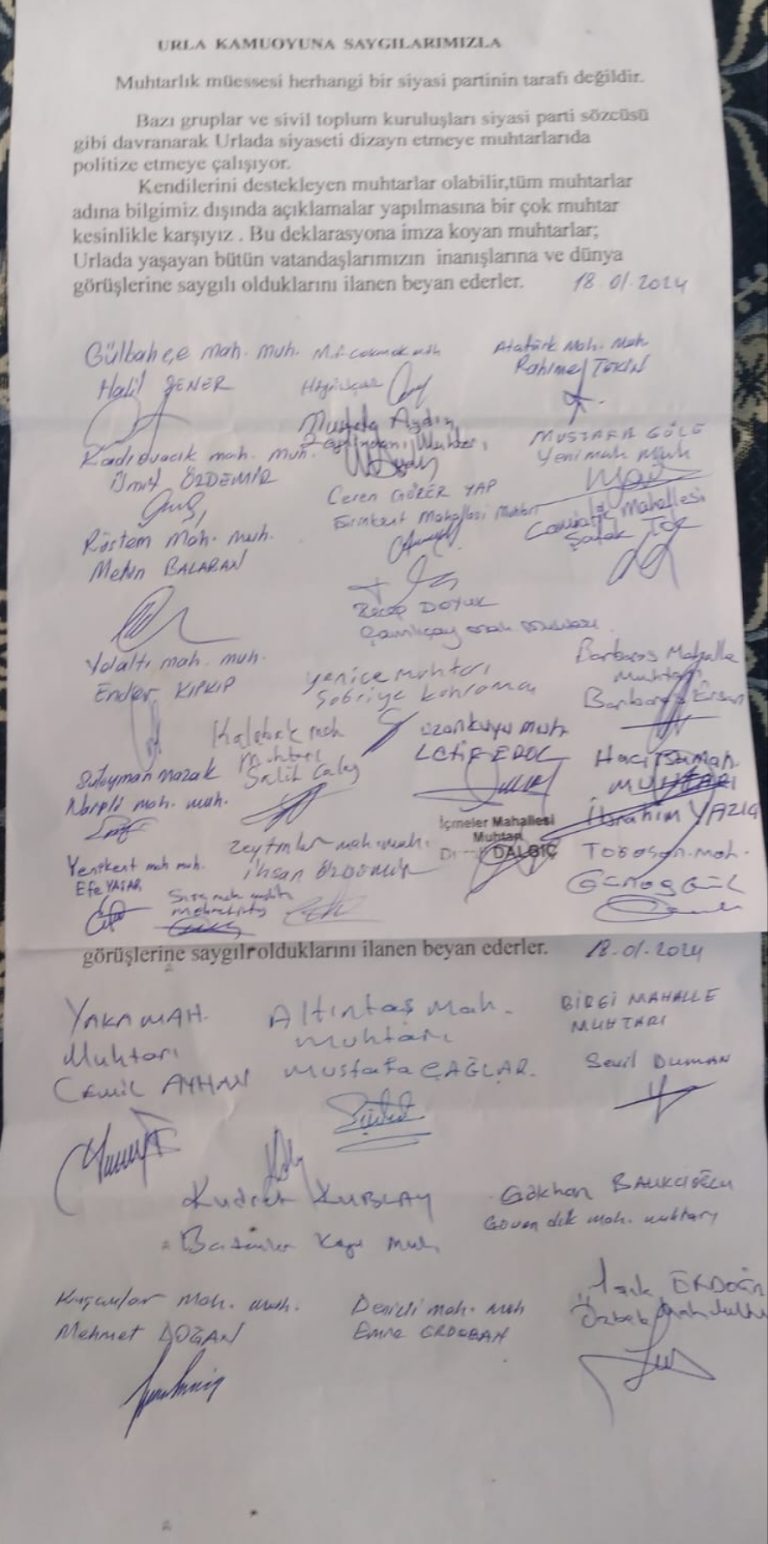 URLA KAMUOYUNA SAYGILARIMIZLA
Muhtarlık müessesi herhangi bir siyasi partinin tarafı değildir.
Bazı gruplar ve sivil toplum kuruluşları siyasi parti sözcüsü
gibi davranarak Urlada siyaseti dizayn etmeye muhtarlarıda
politize etmeye çalışıyor.
Kendilerini destekleyen muhtarlar olabilir,tüm muhtarlar
adına bilgimiz dışında açıklamalar yapılmasına bir çok muhtar
kesinlikle karşıyız . Bu deklarasyona imza koyan muhtarlar;
Urlada yaşayan bütün vatandaşlarımızın inanışlarına ve dünya
görüşlerine saygılı olduklarını ilanen beyan ederler. 18.01.2024
Gülbahçe mah. muh.
Halil ŞENER
Atatürk Mah. Muh.
Rahime TEKİN
Mustafa Aydın
Kadıovacık mah. muh.
Ümit ÖZDEMİR
MUSTAFA GÜLÜ
Yeni mah Muh
Ceren GÖZER YAP
Mahallesi Muhtarı
Camiatik Mahallesi
Şafak
Rüstem Mah. muh.
Metin BALABAN
Recep DOYUK
Çamlıçay mah
Yolaltı mah. muh.
Ender KIPKIP
yenice muhtarı
Sabriye kahraman
Barbaros Mahalle
Muhtarı
Barbaros
Kalabak mah
Muhtarı
Salih
uzunkuyu muh.
LATİF EROL
Hacı İsa mah.
MUHTARI
İbrahim YAZICI
Süleyman Mazak
Nohutlu mah. muh.
İçmeler Mahallesi
Muhtarı
DALGIÇ
Zeytinler mah. muh.
İhsan ÖZDEMİR
Torasan mah.
Günay GÜL
Yenikent mah muh.
Efe YAŞAR
Sıra mah
görüşlerine saygılı olduklarını ilanen beyan ederler. 18.01.2024
YAKA MAH.
Muhtarı
Cemil AYHAN
Altıntaş Mah.
Muhtarı
Mustafa ÇAĞLAR.
BİRGİ MAHALLE
MUHTARI
Sevil DUMAN
Kudret KUBLAY
Bademler Köyü Muh.
Gökhan BALIKÇIOĞLU
Güvendik mah. muhtarı
Kuşçular mah. muh.
Mehmet DOĞAN
Denizli mah. muh
Emre ERDOĞAN
Işık ERDOĞAN
Özbek